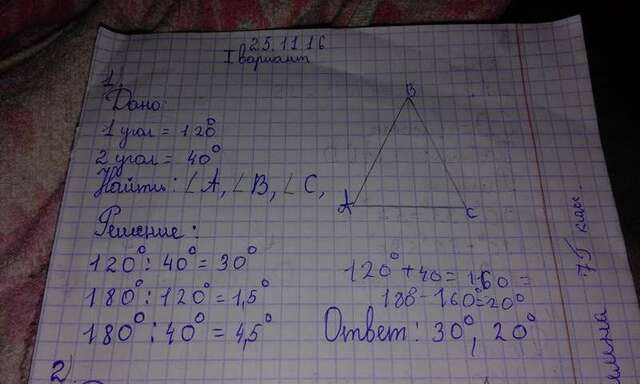 25.11.16
I вариант
1.
Дано:
1 угол = 120°
2 угол = 40°
Найти: ∠A, ∠B, ∠C,
B
A
C
Решение:
120° : 40° = 30°
180° : 120° = 1,5°
180° : 40° = 4,5°
120° + 40 = 160 =
180 - 160° = 20°
Ответ: 30°, 20°
2
7б класс.